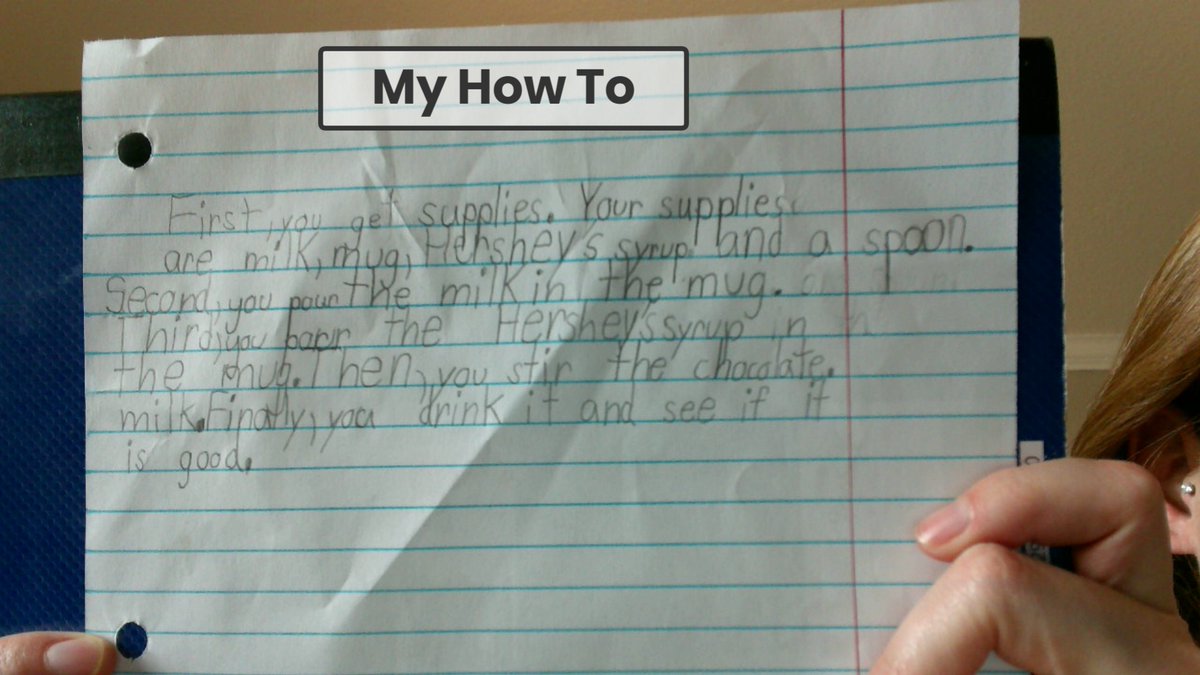 My How To
First, you get supplies. Your supplies
are milk, mug, Hershey's syrup and a spoon.
Second, you pour the milk in the mug.
Third, you pour the Hershey's syrup in
the mug. Then, you stir the chocolate.
milk. Finally, you drink it and see if it
is good.